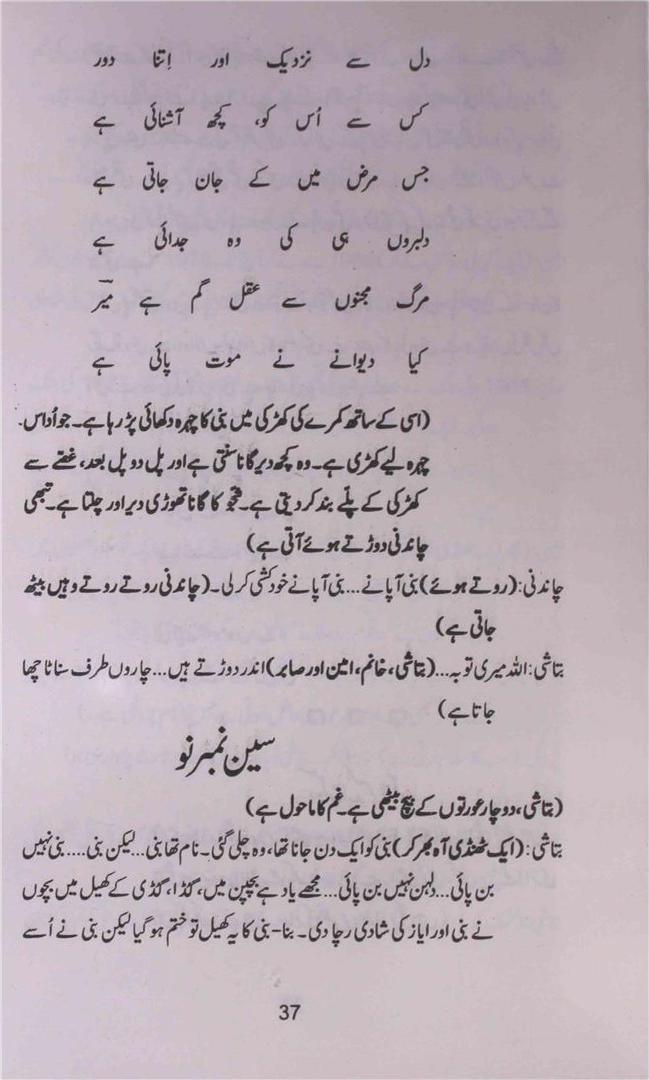 دل سے نزدیک اور اِتنا دور
کس سے اُس کو، کچھ آشنائی ہے
جس مرض میں کے جان جاتی ہے
دلبروں ہی کی وہ جدائی ہے
مرگ مجنوں سے عقل گم ہے میرؔ
کیا دیوانے نے موت پائی ہے
(اسی کے ساتھ کمرے کی کھڑکی میں بنی کا چہرہ دکھائی پڑ رہا ہے۔ جو اُداس
چہرہ لیے کھڑی ہے۔ وہ کچھ دیر گانا سنتی ہے اور پل دو پل بعد، غصّے سے
کھڑکی کے پلّے بند کر دیتی ہے۔ فجّو کا گانا تھوڑی دیر اور چلتا ہے۔ تبھی
چاندنی دوڑتے ہوئے آتی ہے)
چاندنی: (روتے ہوئے) بنی آپا نے... بنی آپا نے خودکشی کر لی۔ (چاندنی روتے روتے وہیں بیٹھ
جاتی ہے)
بتاشی: اللہ میری توبہ... (بتاشی، خانم، امین اور صابر) اندر دوڑتے ہیں... چاروں طرف سناٹا چھا
جاتا ہے)
سین نمبر نو
(بتاشی، دو چار عورتوں کے بیچ بیٹھی ہے۔ غم کا ماحول ہے)
بتاشی: (ایک ٹھنڈی آہ بھر کر) بنی کو ایک دن جانا تھا، وہ چلی گئی۔ نام تھا بنی... لیکن بنی.... بنی نہیں
بن پائی... دلہن نہیں بن پائی... مجھے یاد ہے بچپن میں، گڈا، گڈی کے کھیل میں بچوں
نے بنی اور ایاز کی شادی رچا دی۔ بنا-بنی کا یہ کھیل تو ختم ہو گیا لیکن بنی نے اُسے
37